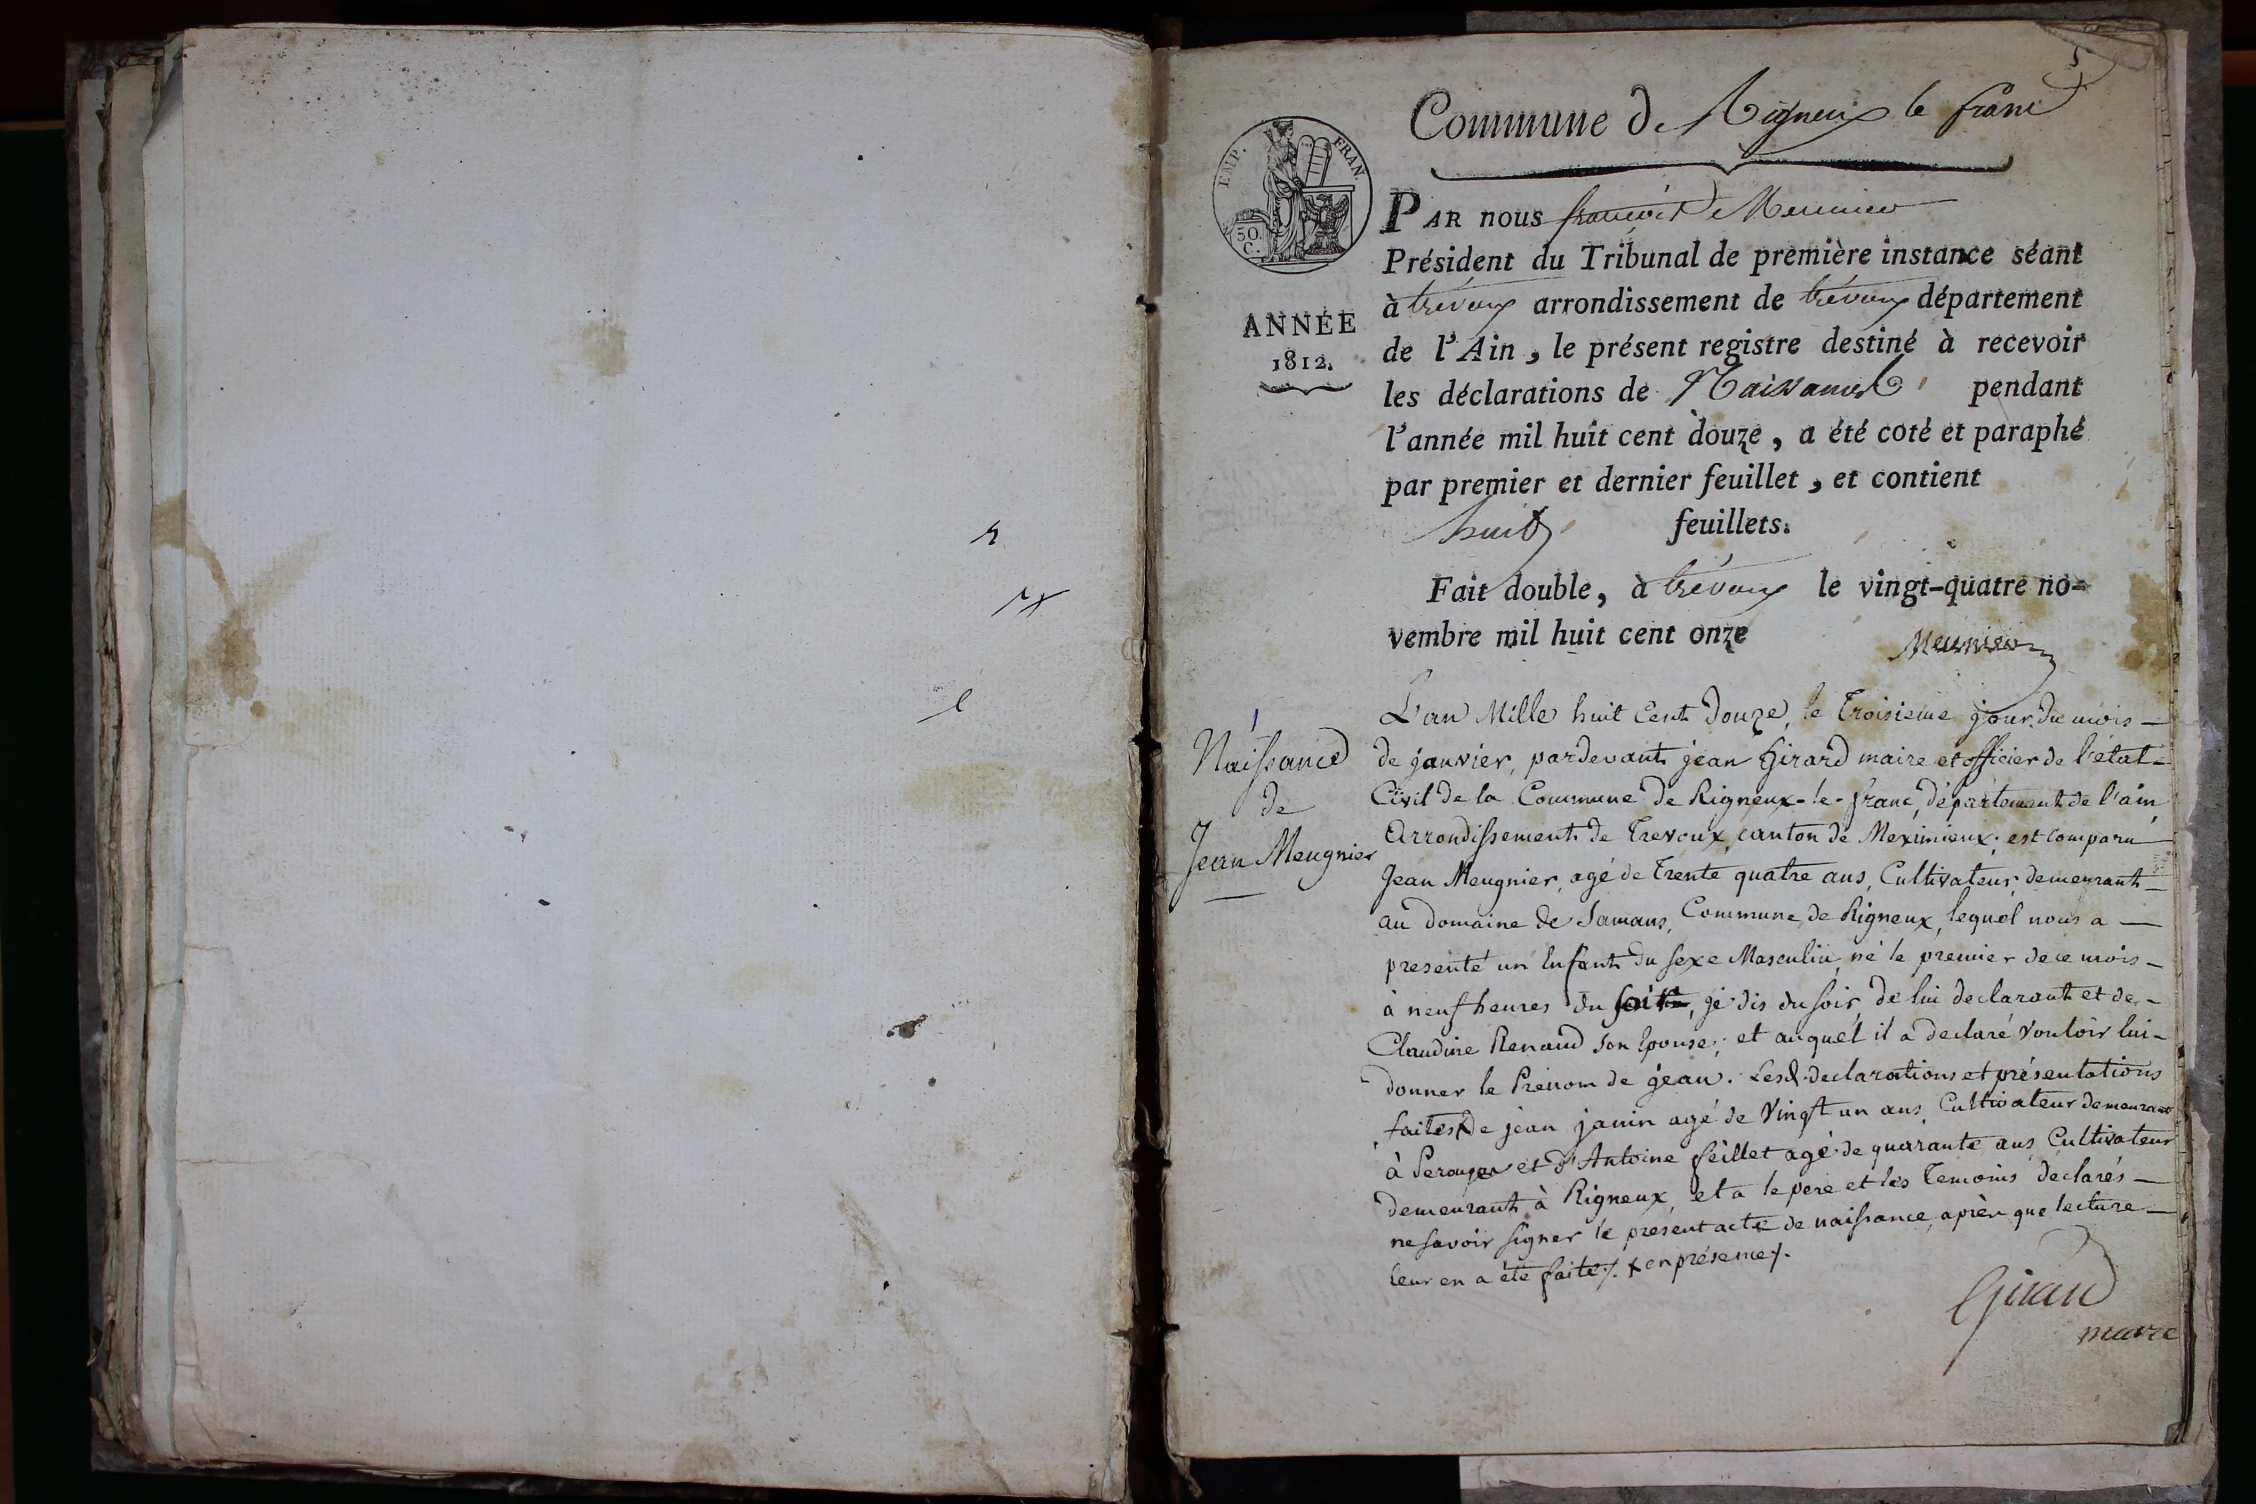 Commune de Rigneux le franc
EMP. FRAN.
50.
C.
PAR nous françois Meunier
Président du Tribunal de première instance séant
à trévoux arrondissement de trévoux département
ANNÉE
1812.
de l'Ain, le présent registre destiné à recevoir
les déclarations de Naissances pendant
l'année mil huit cent douze, a été coté et paraphé
par premier et dernier feuillet, et contient
huit feuillets.
Fait double, à trévoux le vingt-quatre no-
vembre mil huit cent onze
Meunier
1
Naissance
de
Jean Meugnier
L'an Mille huit Cent Douze, le Troisieme jour du mois
de janvier, pardevant jean Girard maire et officier de l'état
Civil de la Commune de Rigneux-le-franc, département de l'ain
Arrondissement de Trevoux, canton de Meximieux; est comparu
Jean Meugnier, agé de Trente quatre ans, Cultivateur, demeurant
au Domaine de Samans, Commune de Rigneux, lequel nous a
presenté un Enfant du sexe Masculin, né le premier de ce mois
à neuf heures du soir, je dis du soir, de lui declarant et de
Claudine Renaud son Epouse; et auquel il a declaré vouloir lui
donner le Prénom de jean. Lesd. declarations et présentations
faites x de jean janin agé de Vingt un ans, Cultivateur demeurant
à Perouges et d'Antoine feillet agé de quarante ans, Cultivateur
demeurant à Rigneux, et a le pere et les Temoins declarés
ne savoir signer le present acte de naissance, après que lecture
leur en a été faite /. x en présence /.
Girard
maire